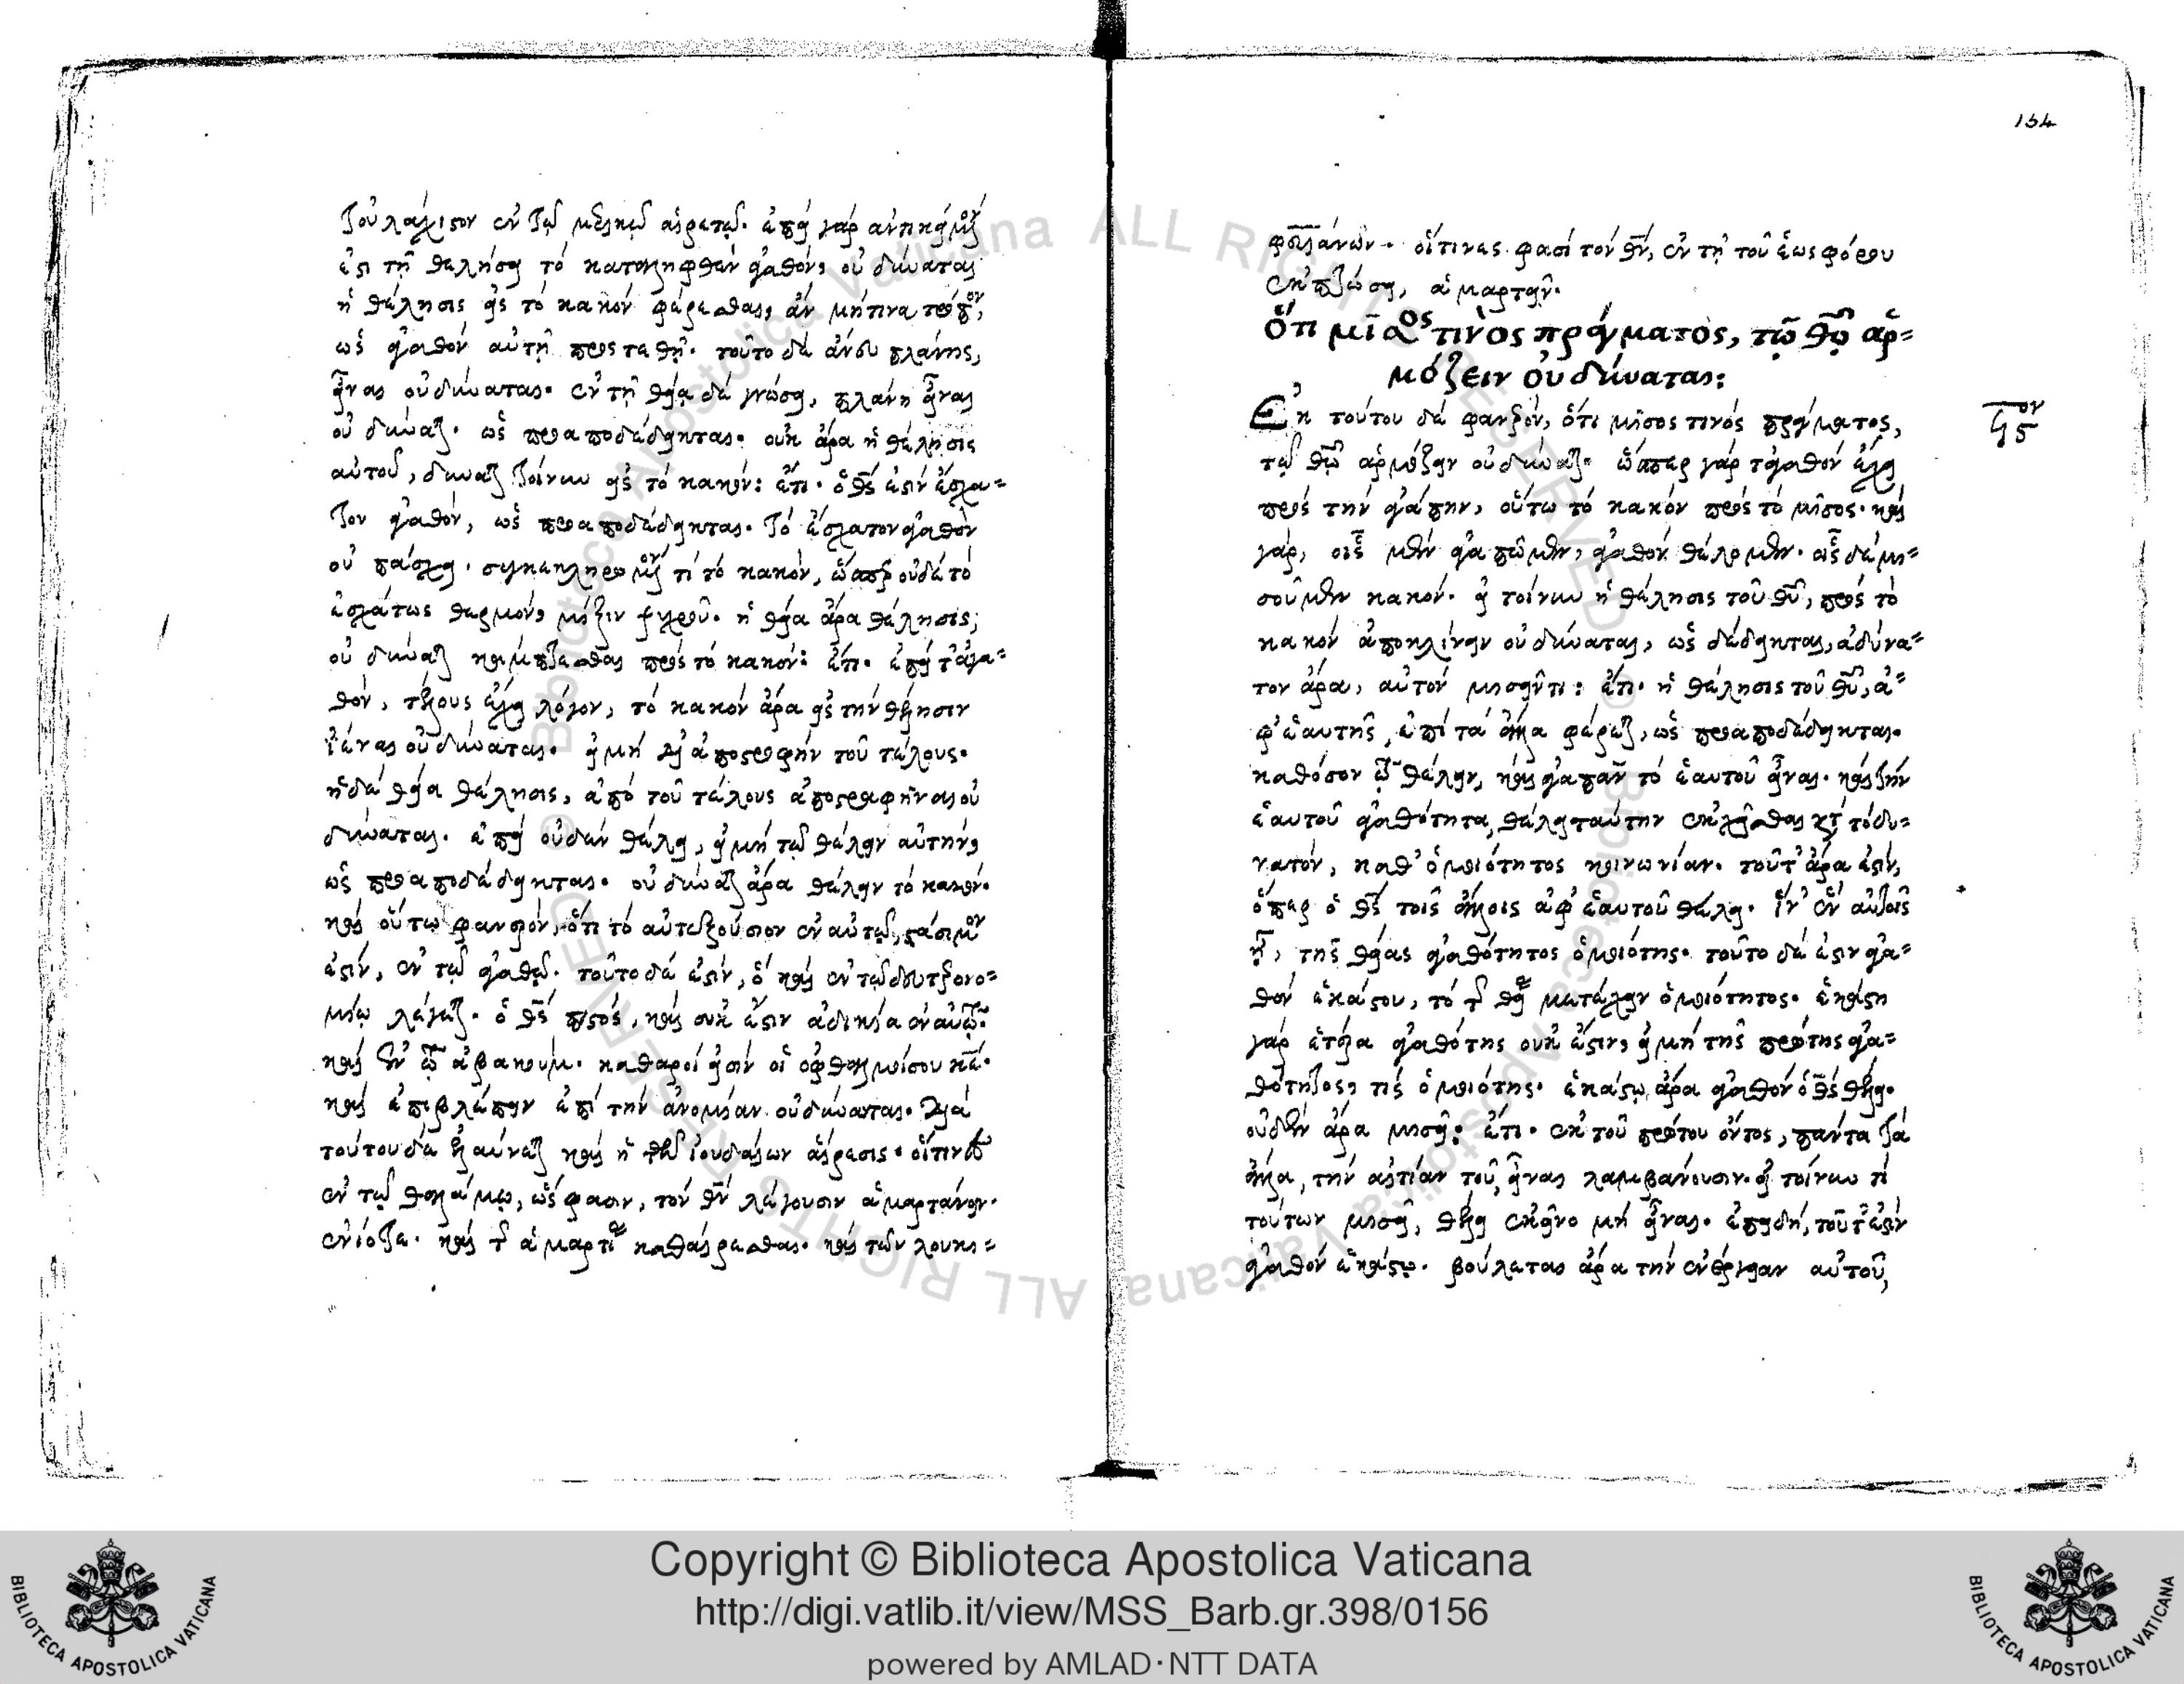 τοὐλάχιστον ἐν τῷ μερικῷ αἱρετῷ. ἐπεὶ γὰρ ἀντικείμενον
ἐστι τῇ θελήσει τὸ καταληφθὲν ἀγαθόν, οὐ δύναται
ἡ θέλησις εἰς τὸ κακὸν φέρεσθαι, ἂν μή τινα τρόπον,
ὡς ἀγαθὸν αὐτῇ προσταθῇ. τοῦτο δὲ ἄνευ πλάνης,
εἶναι οὐ δύναται. ἐν τῇ θείᾳ δὲ γνώσει, πλάνη εἶναι
οὐ δύναται. ὡς προαποδέδεικται. οὐκ ἄρα ἡ θέλησις
αὐτοῦ, δύναται τείνειν εἰς τὸ κακόν: ἔτι. ὁ θς ἐστιν ἔσχα=
τον ἀγαθόν, ὡς προαποδέδεικται. τὸ ἔσχατον ἀγαθὸν
οὐ πάσχει. συγκεκληρωμένον τί τὸ κακὸν, ὥσπερ οὐδὲ τὸ
ἐσχάτως θερμόν, μίξιν ψυχροῦ. ἡ θεία ἄρα θέλησις,
οὐ δύναται κάμπτεσθαι πρὸς τὸ κακόν: ἔτι. ἐπεὶ τἀγα=
θόν, τέλους ἔχει λόγον, τὸ κακὸν ἄρα εἰς τὴν θέλησιν
ἰέναι οὐ δύναται. εἰ μὴ δι' ἀποστροφὴν τοῦ τέλους.
ἡ δὲ θεία θέλησις, ἀπὸ τοῦ τέλους ἀποστραφῆναι οὐ
δύναται. ἐπεὶ οὐδὲν θέλει, εἰ μὴ τῷ θέλειν αὐτήν,
ὡς προαποδέδεικται. οὐ δύναται ἄρα θέλειν τὸ κακόν.
καὶ οὕτω φανερόν, ὅτι τὸ αὐτεξούσιον ἐν αὐτῷ, στάσιμον
ἐστίν, ἐν τῷ ἀγαθῷ. τοῦτο δέ ἐστιν, ὃ καὶ ἐν τῷ δευτερονο=
μίῳ λέγεται. ὁ θς πιστός, καὶ οὐκ ἔστιν ἀδικία ἐν αὐτῷ.
καὶ ἐν τῷ ἀβακουμ. καθαροί εἰσιν οἱ ὀφθαλμοί σου κε.
καὶ ἐπιβλέπειν ἐπὶ τὴν ἀνομίαν οὐ δύναται. διὰ
τούτου δὲ ἐξαιρεῖται καὶ ἡ τῶν ἰουδαίων αἵρεσις. οἵτινες
ἐν τῷ θαλαμῳ, ὥς φασιν, τὸν θν λέγουσιν ἁμαρτάνειν.
ἐνίοτε. καὶ τῆς ἁμαρτίας καθαίρεσθαι. καὶ τῶν λουκι=
154
φεριανῶν. οἵτινες φασὶ τὸν θν, ἐν τῇ τοῦ ἑωσφόρου
ἐκπτώσει, ἁμαρτεῖν.
Ὅτι μῖσος τινὸς πράγματος, τῷ θῷ ἁρ=
μόζειν οὐ δύναται:
Ἐκ τούτου δὲ φανερόν, ὅτι μῖσος τινὸς πράγματος,
τῷ θῷ ἁρμόζειν οὐ δύναται. ὥσπερ γὰρ τἀγαθὸν ἔχει
πρὸς τὴν ἀγάπην, οὕτω τὸ κακὸν πρὸς τὸ μῖσος. καὶ
γάρ, οἷς μὲν ἀγαπῶμεν, ἀγαθὸν θέλομεν. οἷς δὲ μι=
σοῦμεν κακόν. εἰ τοίνυν ἡ θέλησις τοῦ θυ, πρὸς τὸ
κακὸν ἀποκλίνειν οὐ δύναται, ὡς δέδεικται, ἀδύνα=
τον ἄρα, αὐτὸν μισεῖν τι: ἔτι. ἡ θέλησις τοῦ θυ, ἀ=
φ' ἑαυτῆς, ἐπὶ τὰ ἄλλα φέρεται, ὡς προαποδέδεικται.
καθόσον τῷ θέλειν, καὶ ἀγαπᾶν τὸ ἑαυτοῦ εἶναι. καὶ τὴν
ἑαυτοῦ ἀγαθότητα, θέλει ταύτην ἐκχεῖσθαι κατὰ τὸ δυ=
νατόν, καθ' ὁμοιότητος κοινωνίαν. τοῦτ' ἄρα ἐστίν,
ὅπερ ὁ θς τοῖς ἄλλοις ἀφ' ἑαυτοῦ θέλει. ἵν' ἐν αὐτοῖς
ᾖ, τῆς θείας ἀγαθότητος ὁμοιότης. τοῦτο δέ ἐστιν ἀγα=
θὸν ἑκάστου, τὸ τῆς θείας μετέχειν ὁμοιότητος. ἑκάστη
γὰρ ἑτέρα ἀγαθότης οὐκ ἔστιν, εἰ μὴ τῆς πρώτης ἀγα=
θότητος, τὶς ὁμοιότης. ἑκάστῳ ἄρα ἀγαθὸν ὁ θς θέλει.
οὐδὲν ἄρα μισεῖ: ἔτι. ἐκ τοῦ πρώτου ὄντος, πάντα τὰ
ἄλλα, τὴν αἰτίαν τοῦ, εἶναι λαμβάνουσιν. εἰ τοίνυν τὶ
τούτων μισεῖ, θέλει ἐκεῖνο μὴ εἶναι. ἐπειδή, τοῦτ' ἐστὶν
ἀγαθὸν ἑκάστῳ. βούλεται ἄρα τὴν ἐνέργειαν αὐτοῦ,
Copyright © Biblioteca Apostolica Vaticana
http://digi.vatlib.it/view/MSS_Barb.gr.398/0156
powered by AMLAD·NTT DATA
BIBLIOTECA APOSTOLICA VATICANA
BIBLIOTECA APOSTOLICA VATICANA